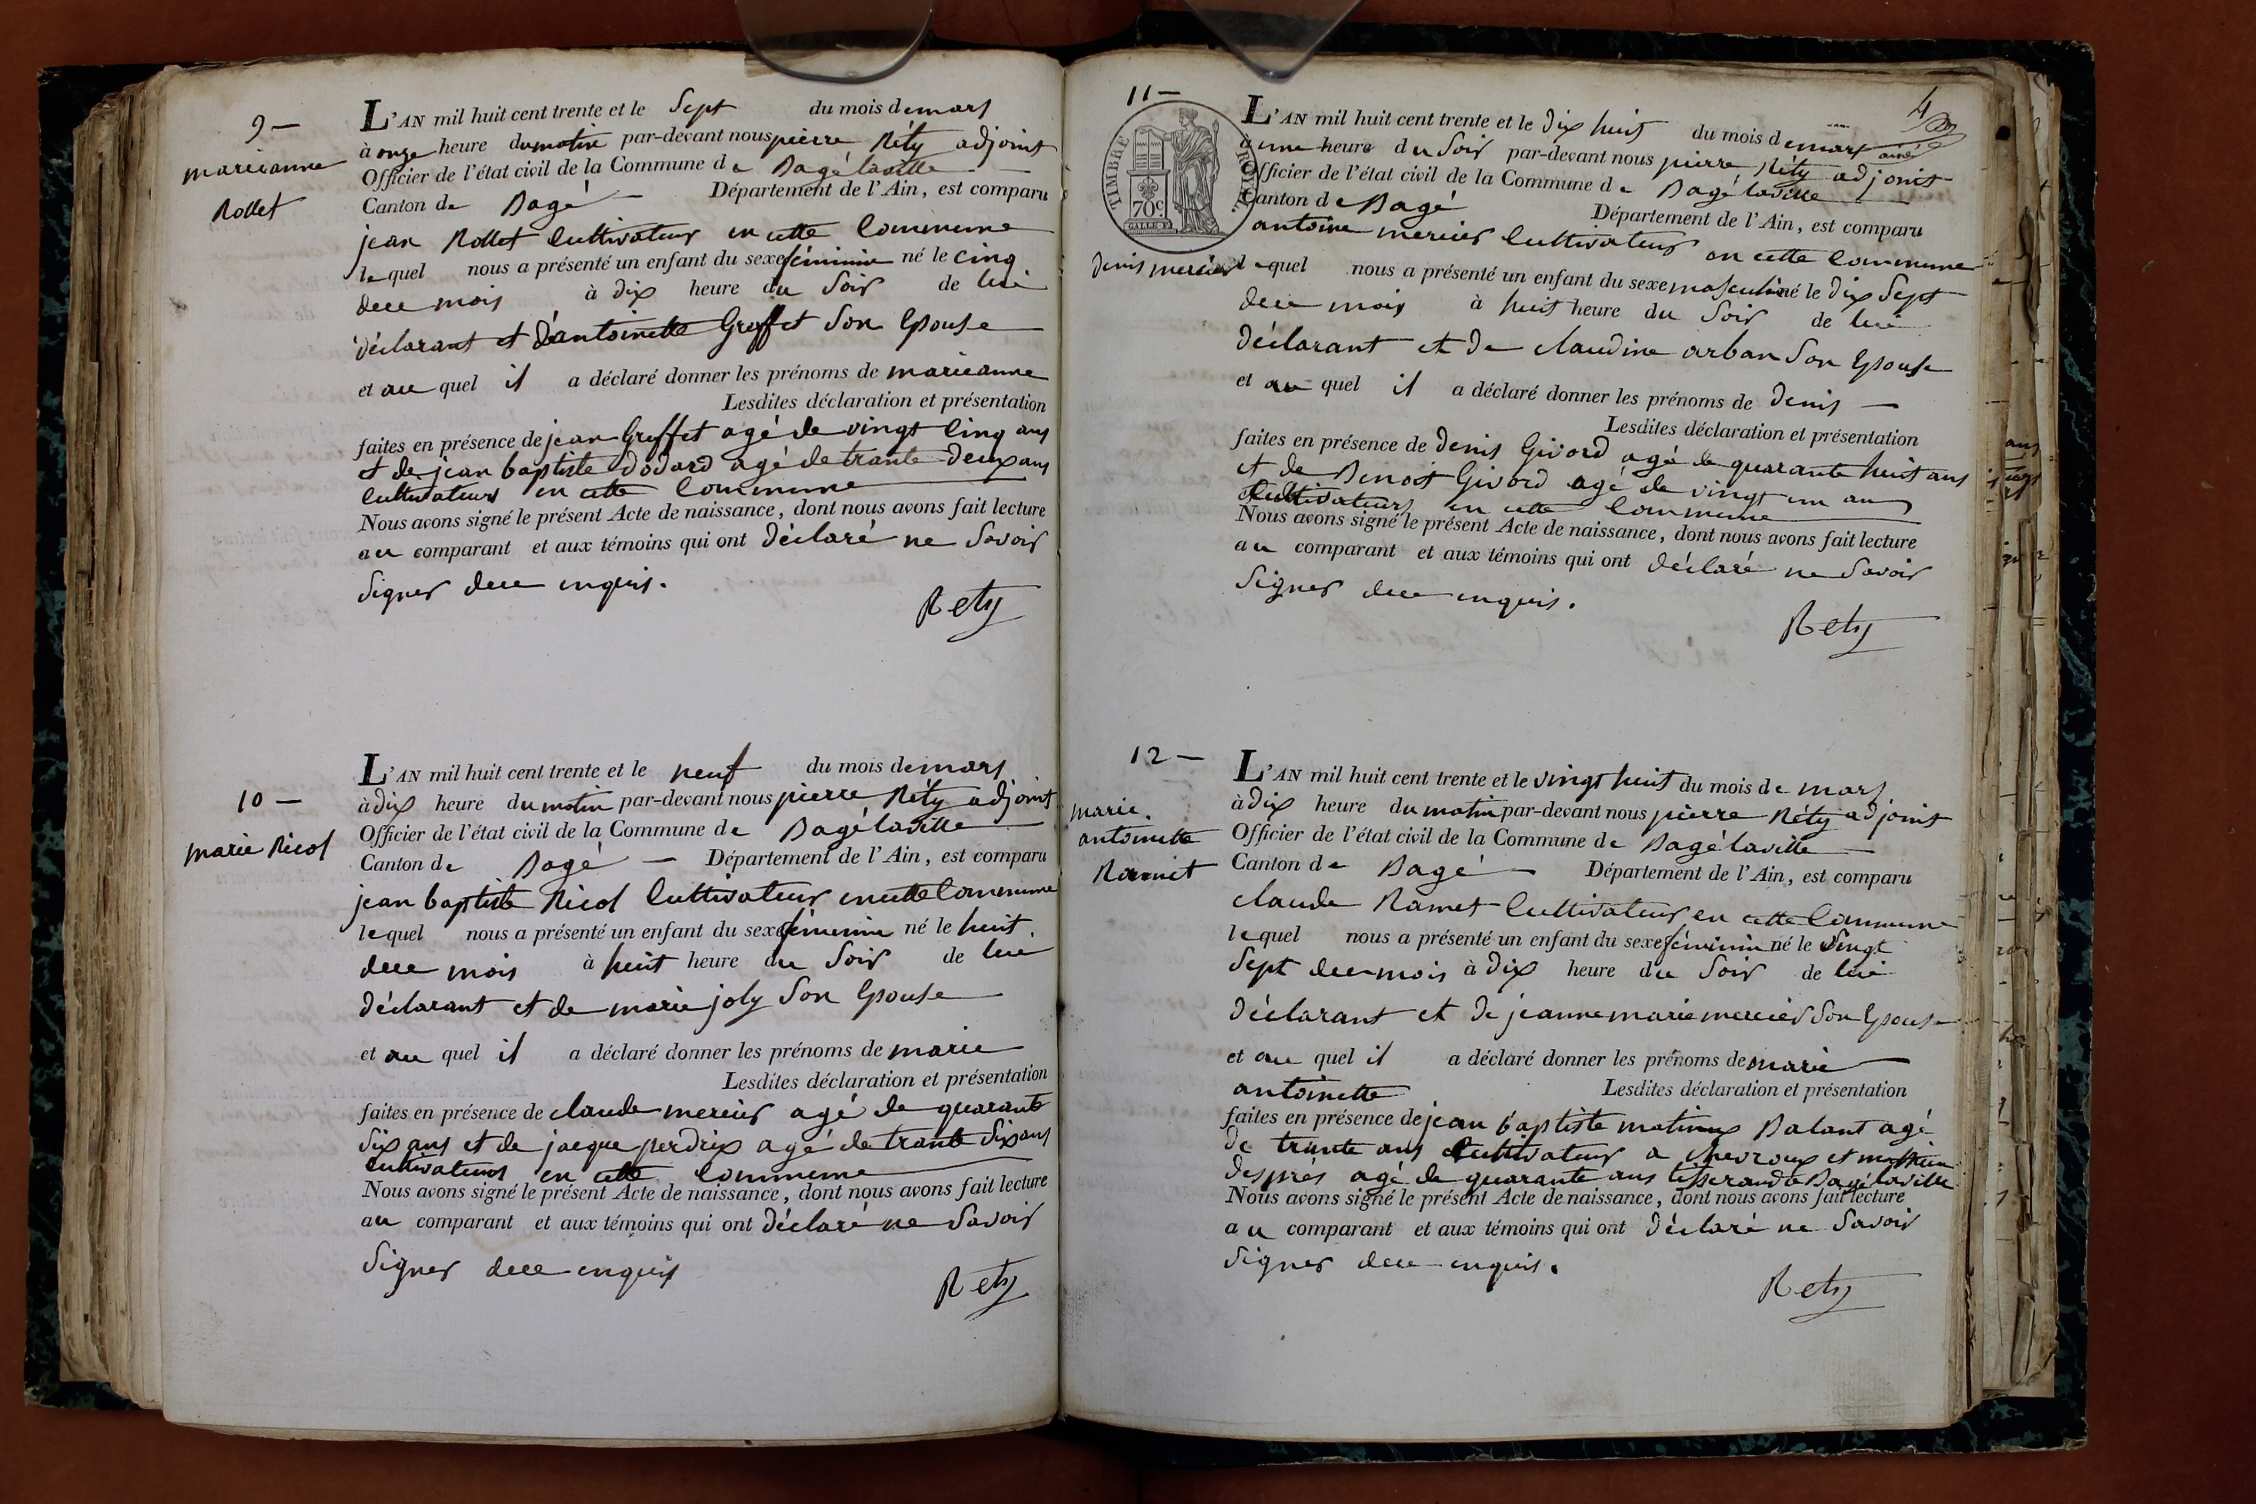 9 —
marieanne
Rollet
L'AN mil huit cent trente et le Sept du mois de mars
à onze heure du matin par-devant nous pierre Réty adjoint
Officier de l'état civil de la Commune de Bagé laville
Canton de Bagé — Département de l'Ain, est comparu
jean Rollet Cultivateur en cette Commune
lequel nous a présenté un enfant du sexe féminin né le cinq
duu mois à dix heure du Soir de lui
déclarant et d'antoinette Greffet Son Epouse
et au quel il a déclaré donner les prénoms de marieanne
Lesdites déclaration et présentation
faites en présence de jean Greffet agé de vingt Cinq ans
et de jean baptiste Dodard agé de trante deux ans
Cultivateurs en cette Commune
Nous avons signé le présent Acte de naissance, dont nous avons fait lecture
au comparant et aux témoins qui ont déclaré ne Savoir
Signer duu enquis.
Rety
10 —
marie Nicol
L'AN mil huit cent trente et le neuf du mois de mars
à dix heure du matin par-devant nous pierre Réty adjoint
Officier de l'état civil de la Commune de Bagé laville
Canton de Bagé — Département de l'Ain, est comparu
jean baptiste Nicol Cultivateur en cette Commune
lequel nous a présenté un enfant du sexe féminin né le huit
duu mois à huit heure du Soir de lui
déclarant et de marie joly Son Epouse
et au quel il a déclaré donner les prénoms de marie
Lesdites déclaration et présentation
faites en présence de claude mercier agé de quarante
Six ans et de jacque perdrix agé de trante Six ans
Cultivateurs en cette Commune
Nous avons signé le présent Acte de naissance, dont nous avons fait lecture
au comparant et aux témoins qui ont déclaré ne Savoir
Signer duu enquis
Rety
4
11 —
TIMBRE ROYAL
70c.
denis mercier
L'AN mil huit cent trente et le dix huit du mois de mars
à une heure du Soir par-devant nous pierre Réty adjoint
Officier de l'état civil de la Commune de Bagé laville
Canton de Bagé Département de l'Ain, est comparu
antoine mercier Cultivateur en cette Commune
lequel nous a présenté un enfant du sexe masculin né le dix Sept
duu mois à huit heure du Soir de lui
déclarant et de claudine arban Son Epouse
et au quel il a déclaré donner les prénoms de denis —
Lesdites déclaration et présentation
faites en présence de denis Givord agé de quarante huit ans
et de Benoit Givord agé de vingt un an
Cultivateurs en cette Commune
Nous avons signé le présent Acte de naissance, dont nous avons fait lecture
au comparant et aux témoins qui ont déclaré ne Savoir
Signer duu enquis.
Rety
12 —
marie
antoinette
Ramet
L'AN mil huit cent trente et le vingt huit du mois de mars
à dix heure du matin par-devant nous pierre Réty adjoint
Officier de l'état civil de la Commune de Bagé laville
Canton de Bagé — Département de l'Ain, est comparu
claude Ramet Cultivateur en cette Commune
lequel nous a présenté un enfant du sexe féminin né le Vingt
Sept duu mois à dix heure du Soir de lui
déclarant et de jeanne marie mercier Son Epouse
et au quel il a déclaré donner les prénoms de marie
antoinette Lesdites déclaration et présentation
faites en présence de jean baptiste Balant agé
de trante ans Cultivateur a chevroux et
després agé de quarante ans tisserand à Bagé laville
Nous avons signé le présent Acte de naissance, dont nous avons fait lecture
au comparant et aux témoins qui ont déclaré ne Savoir
Signer duu enquis.
Rety